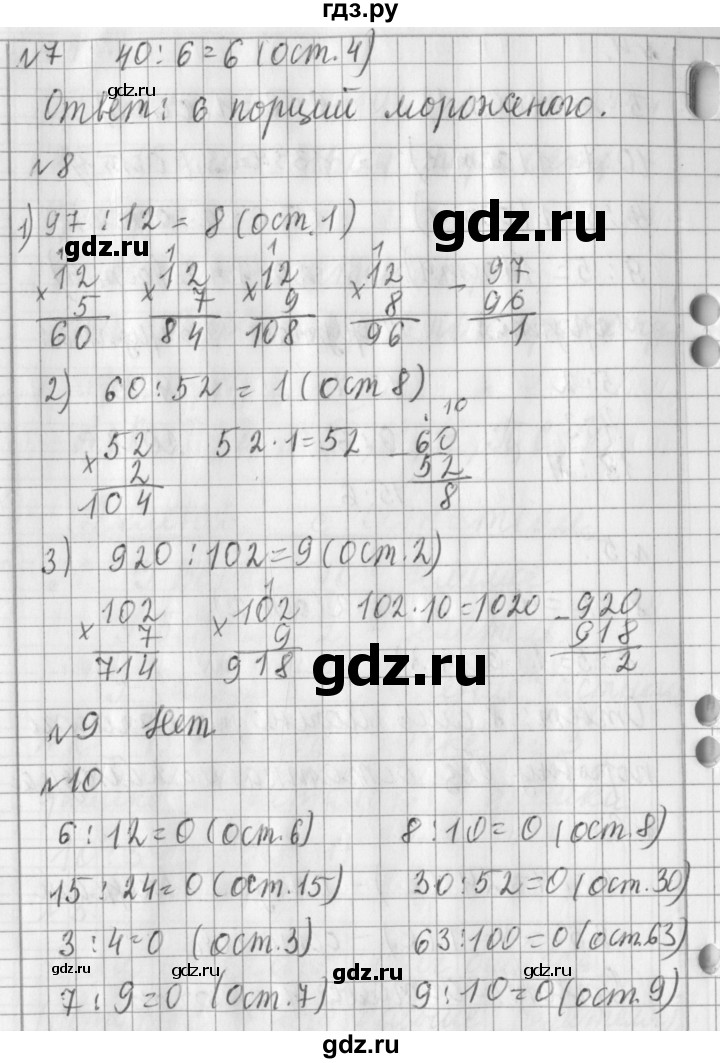 гдз.ру
№7 40 : 6 = 6 (ост. 4)
gdz.ru
Ответ: 6 порций мороженого.
№8
1) 97 : 12 = 8 (ост. 1)
gdz.ru gdz.ru
1 1 1 1
× 12 × 12 × 12 × 12 - 97
5 7 9 8 96
60 84 108 96 1
2) 60 : 52 = 1 (ост 8)
. 10
× 52 52 · 1 = 52 - 60
2 52
104 8
3) 920 : 102 = 9 (ост. 2)
1
× 102 × 102 102 · 10 = 1020 - 920
7 9 918
714 918 2
gdz.ru
№9 Нет
№10
6 : 12 = 0 (ост. 6) 8 : 10 = 0 (ост. 8)
15 : 24 = 0 (ост. 15) 30 : 52 = 0 (ост. 30)
3 : 4 = 0 (ост. 3) 63 : 100 = 0 (ост. 63)
gdz.ru gdz.ru gdz.ru gdz.ru
7 : 9 = 0 (ост. 7) 9 : 10 = 0 (ост. 9)
gdz.ru